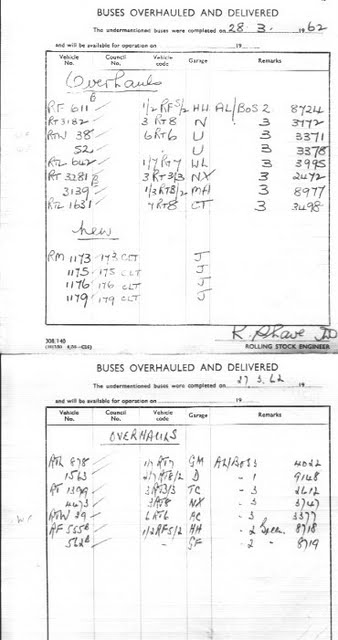 BUSES OVERHAULED AND DELIVERED
The undermentioned buses were completed on 28. 3. 1962
and will be available for operation on 19
Vehicle No. Council No. Vehicle code Garage Remarks
Overhauls
RF 611 1/2 RF5/2 HH AL/BOS 2 8724
RT 3182 3 RT8 N 3 3772
RTW 38 6 RT6 U 3 3371
52 U 3 3378
RTL 642 1/7 RT7 WL 3 3995
RT 3281 3 RT3/3 NX 3 2472
3139 1/3 RT8/2 MH 3 8977
RTL 1631 7 RT8 CT 3 3498
New
RM 1173 173 CLT J
1175 175 CLT J
1176 176 CLT J
1179 179 CLT J
308/140
ROLLING STOCK ENGINEER
BUSES OVERHAULED AND DELIVERED
The undermentioned buses were completed on 27.3.62 19
and will be available for operation on 19
Vehicle No. Council No. Vehicle code Garage Remarks
OVERHAULS
RTL 878 1/7 RT7 GM AL/BOS 3 4022
1563 2/7 RT8/2 D - 1 9148
RT 1399 3 RT3/3 TC - 3 2612
4473 3 RT8 NX - 3 3747
RTW 39 6 RT6 AC - 3 3377
RF 555 1/2 RF5/2 HH - 2 8718
562 - GF - 2 " 8719